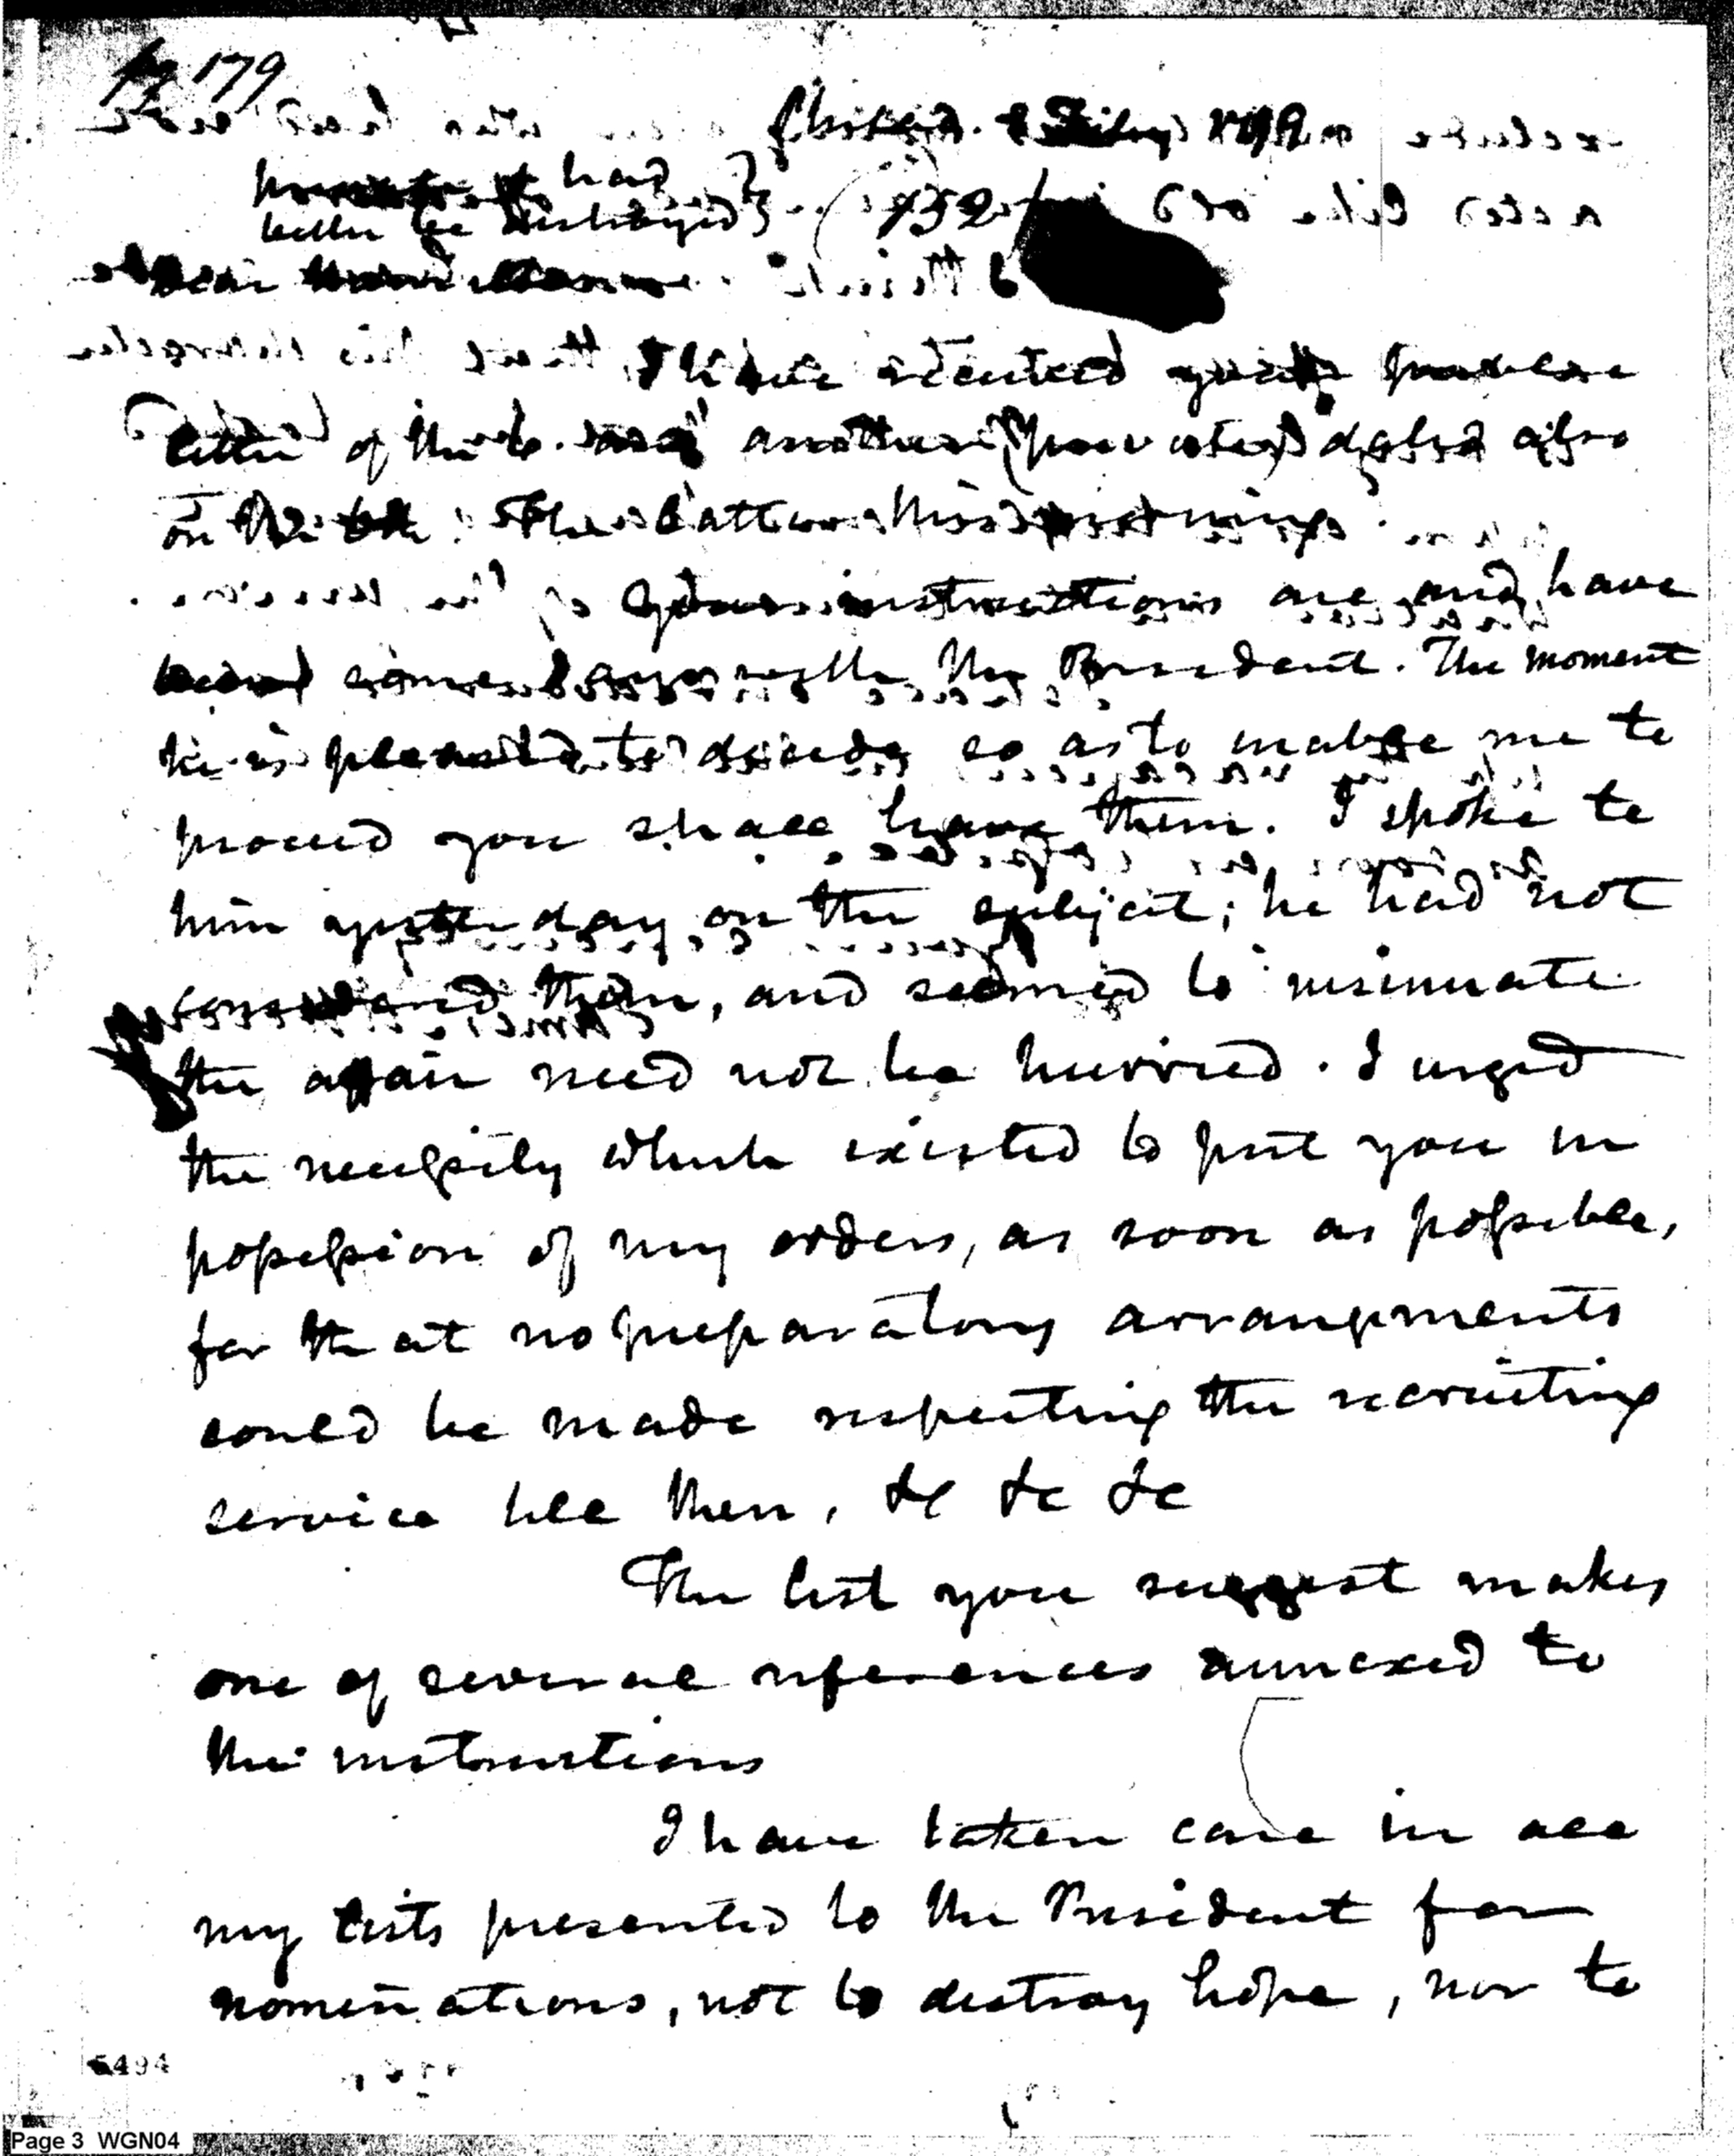 pg 179
Philad. 8 Feby 1799
private & had
better be destroyed
152
Dear
I have received your private
letter of the 6. and another (private) dated also
on the 6th. The latter this morning.
Your instructions are and have
been some days with the President. The moment
he is pleased to decide so as to enable me to
proceed you shall have them. I spoke to
him yesterday on the subject; he had not
considered them, and seemed to insinuate
the affair need not be hurried. I urged
the necessity which existed to put you in
possession of my orders, as soon as possible,
for that no preparatory arrangements
could be made respecting the recruiting
service till then, &c &c &c
The list you suggest makes
one of several references annexed to
the instructions
I have taken care in all
my lists presented to the President for
nominations, not to destroy hope, nor to
5494
Page 3 WGN04